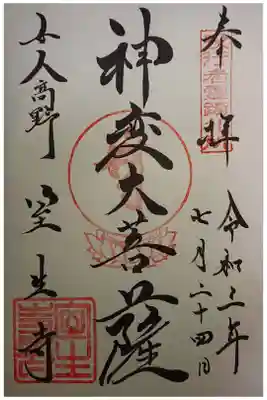 奉拝
令和三年
七月二十四日
神変大菩薩
女人高野
室生寺